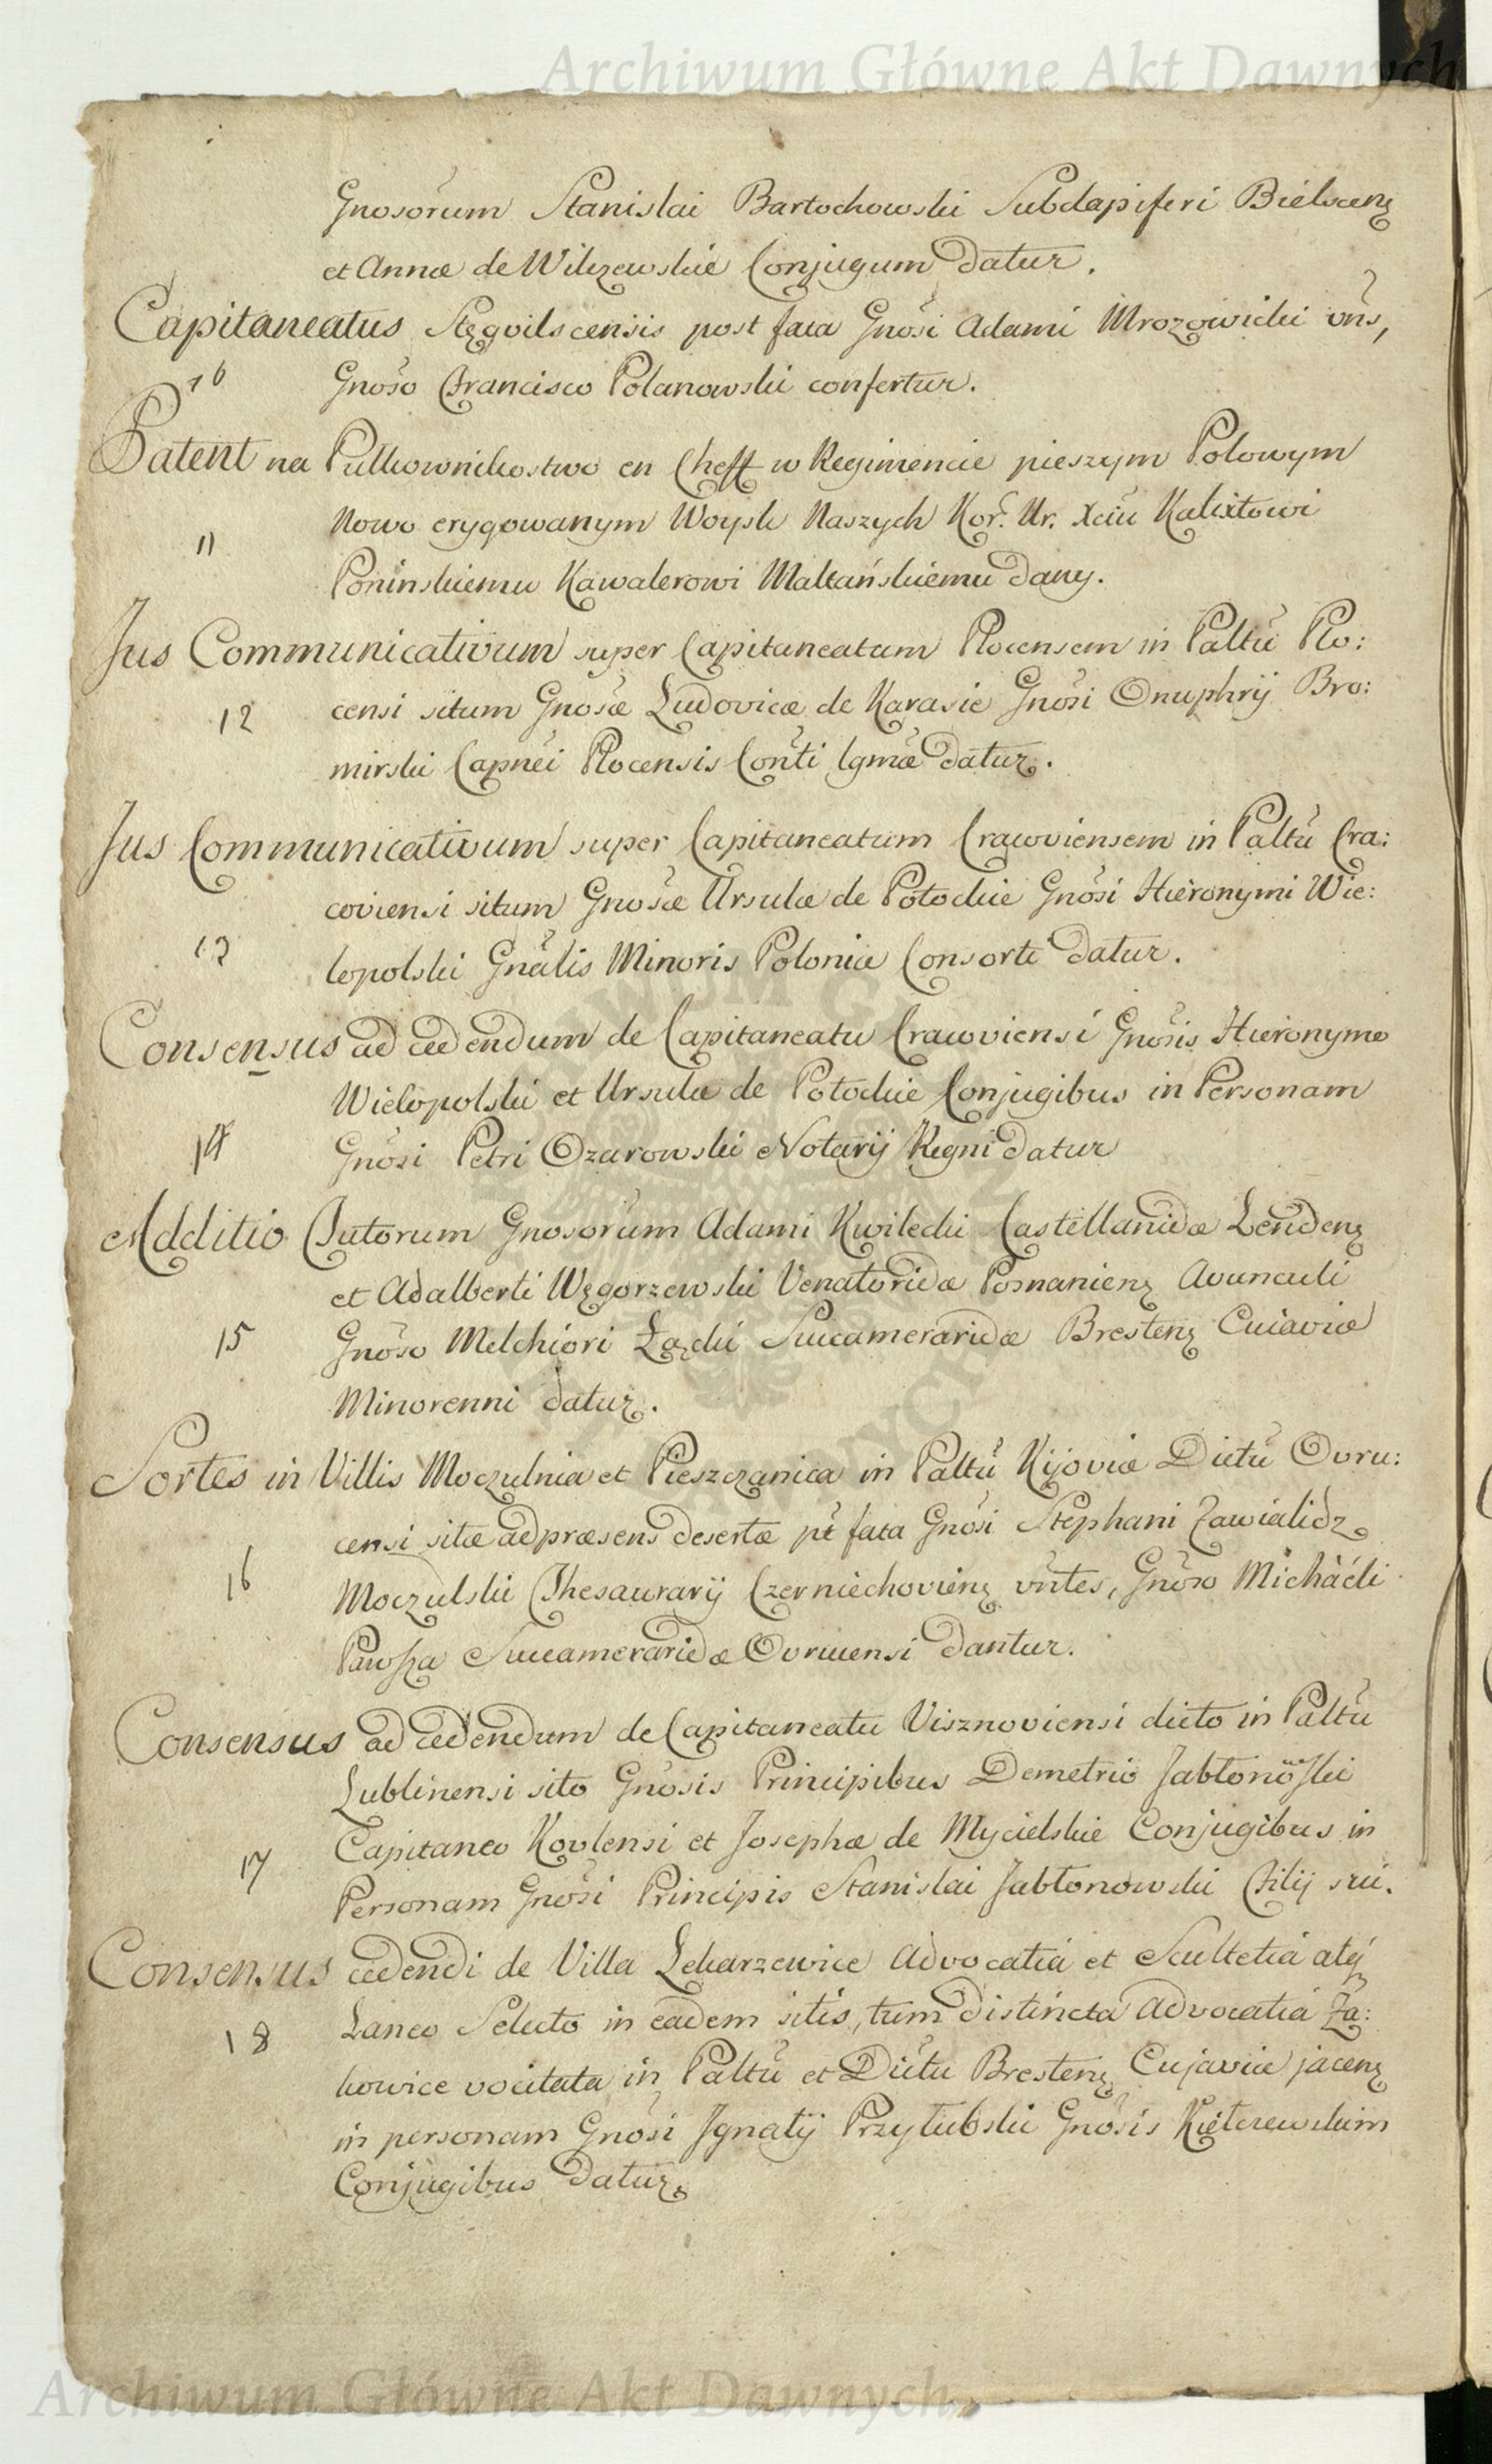 Archiwum Główne Akt Dawnych
Gnosorum Stanislai Bartochowski Subdapiferi Bielscenz
et Annæ de Wilczewskie Conjugum datur.
Capitaneatus Stęgvilscensis post fata Gnosi Adami Mrozowicki vns,
10 Gnoso Francisco Polanowski confertur.
Patent na Pułkownikostwo en Cheff w Regimencie pieszym Polowym
11 Nowo erygowanym Woysk Naszych Kor. Ur. Xciu Kalixtowi
Ponińskiemu Kawalerowi Maltańskiemu dany.
Jus Communicativum super Capitaneatum Plocensem in Paltu Plo:
12 censi situm Gnosæ Ludovicæ de Karasie Gnosi Onuphrij Bro:
mirski Capnei Plocensis Conti lgmæ datur.
Jus Communicativum super Capitaneatum Cracoviensem in Paltu Cra:
coviensi situm Gnosæ Ursulæ de Potockie Gnosi Hieronymi Wie:
13 lopolski Gnalis Minoris Poloniæ Consorti datur.
Consensus ad cedendum de Capitaneatu Cracoviensi Gnosis Hieronymo
Wielopolski et Ursulæ de Potockie Conjugibus in Personam
14 Gnosi Petri Ozarowski Notarij Regni datur
Additio Tutorum Gnosorum Adami Kwilecki Castellanidæ Lendenz
et Adalberti Węgorzewski Venatoridæ Posnanienz Avunculi
15 Gnoso Melchiori Łącki Succameraridæ Brestenz Cuiaviæ
Minorenni datur.
Sortes in Villis Moczulnia et Pieszczanica in Paltu Kijoviæ Dictu Ovru:
censi sitæ ad præsens desertæ pt fata Gnosi Stephani Zawialidz
16 Moczulski Thesaurarij Czerniechovienz vntes, Gnoso Michaeli
Pawsza Succameraridæ Ovrucensi dantur.
Consensus ad cedendum de Capitaneatu Visznoviensi dicto in Paltu
Lublinensi sito Gnosis Principibus Demetrio Jabłonowski
17 Capitaneo Kovlensi et Josephæ de Mycielskie Conjugibus in
Personam Gnosi Principis Stanislai Jabłonowski Filij sui.
Consensus cedendi de Villa Lekarzewice Advocatiá et Scultetiá atq
18 Laneo Selecto in eadem sitis, tum distincta Advocatiá Za:
kowice vocitata in Paltu et Dictu Brestenz Cujaviæ jacenz
in personam Gnosi Ignatij Przyłubski Gnosis Kiełczewskim
Conjugibus datur.
Archiwum Główne Akt Dawnych